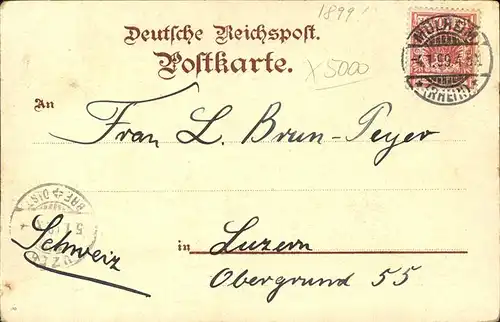 1899!
Deutsche Reichspost.
Postkarte.
X 5000
MÜLHEIM
(RHEIN)
An
Frau L. Brun-Peyer
Schweiz
in Luzern
Obergrund 55